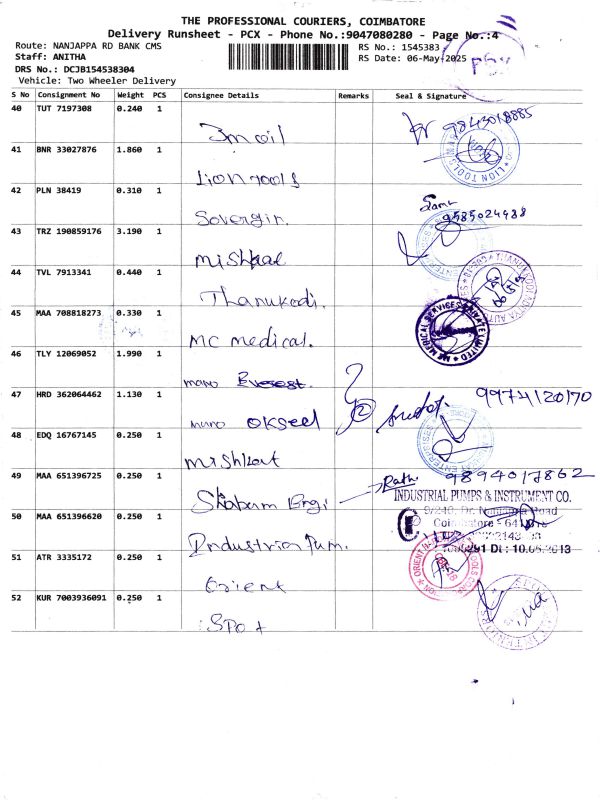 THE PROFESSIONAL COURIERS, COIMBATORE
Delivery Runsheet - PCX - Phone No.:9047080280 - Page No.:4
Route: NANJAPPA RD BANK CMS
RS No.: 1545383
Staff: ANITHA
RS Date: 06-May-2025
DRS No.: DCJB154538304
Vehicle: Two Wheeler Delivery
S No Consignment No Weight PCS Consignee Details Remarks Seal & Signature
40 TUT 7197308 0.240 1
3m oil
9843018885
41 BNR 33027876 1.860 1
Lion Tools
LION TOOLS
42 PLN 38419 0.310 1
Sovergin.
9585024938
43 TRZ 190859176 3.190 1
Mishkal
44 TVL 7913341 0.440 1
Thanukodi.
45 MAA 708818273 0.330 1
MC medical.
MC MEDICAL SERVICES PRIVATE LIMITED
46 TLY 12069052 1.990 1
mano Everest.
47 HRD 362064462 1.130 1
mano okseel
2
9974120170
48 EDQ 16767145 0.250 1
Mishkat
49 MAA 651396725 0.250 1
Rathi 9894017862
INDUSTRIAL PUMPS & INSTRUMENT CO.
50 MAA 651396620 0.250 1
Industrial Pum.
51 ATR 3335172 0.250 1
Orient
52 KUR 7003936091 0.250 1
Spot